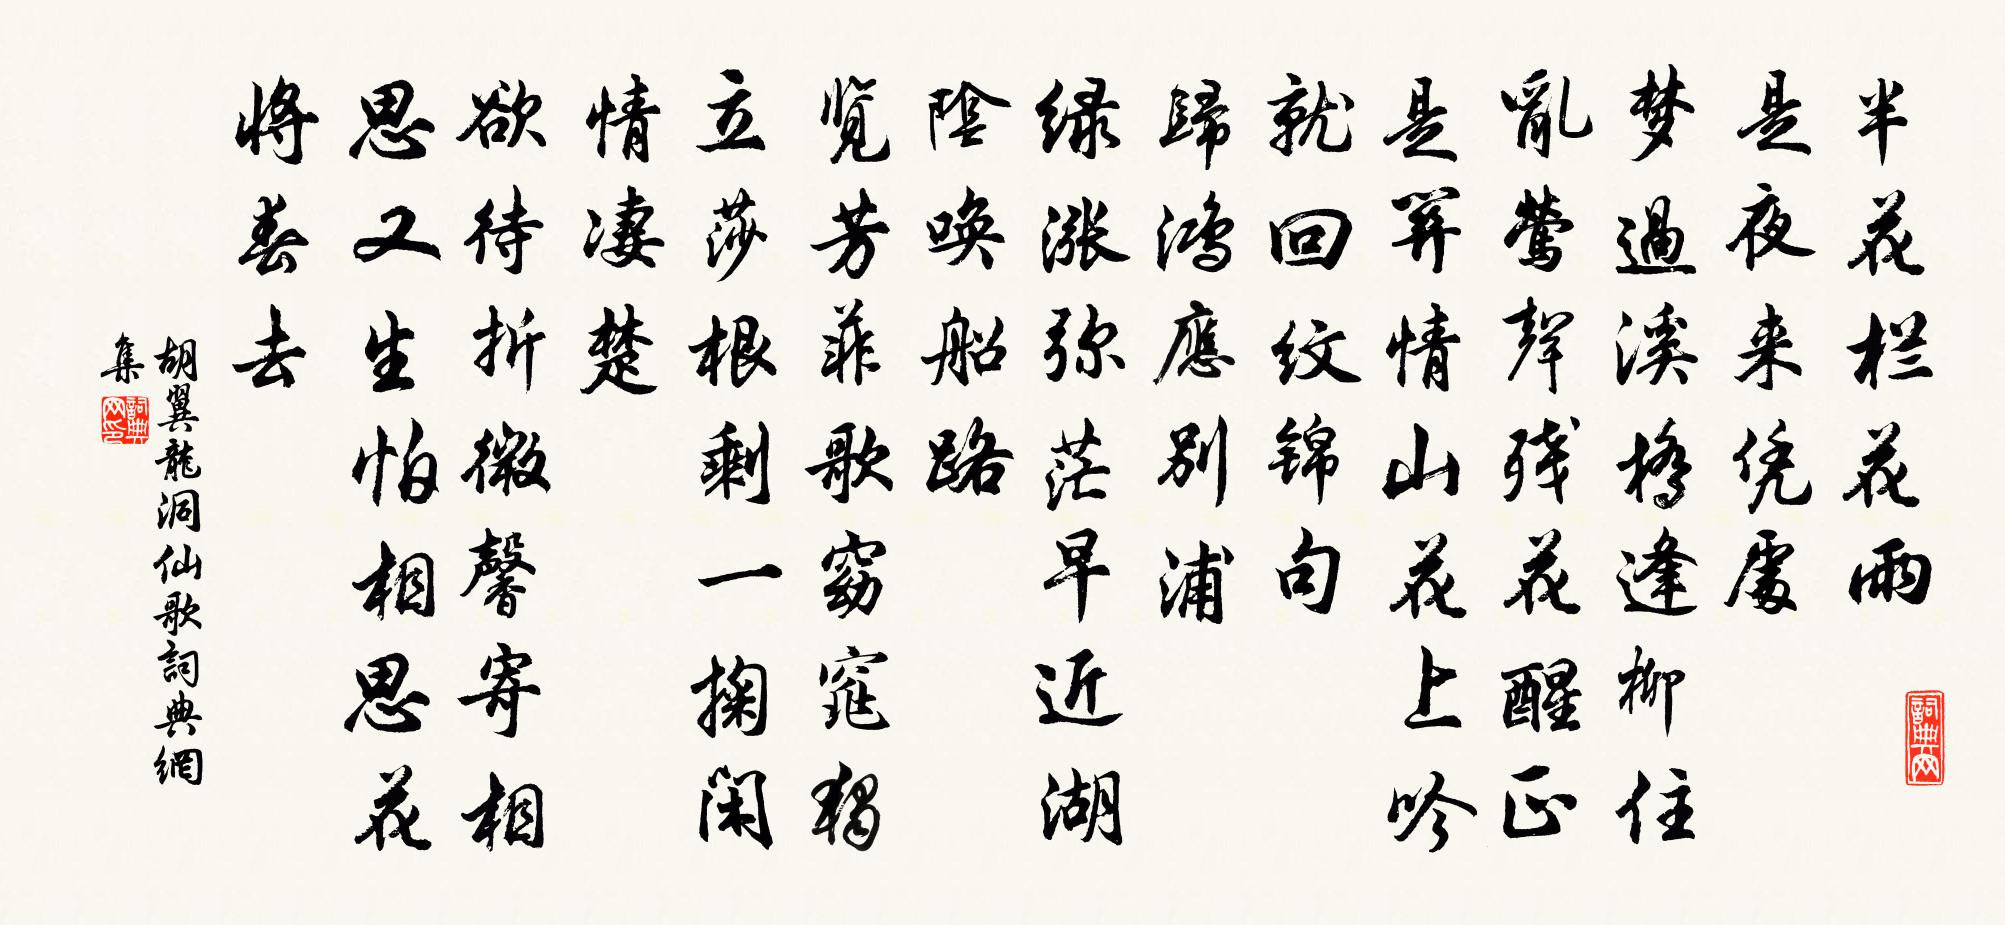 半花栏花雨
是夜来凭處
梦過溪橋逢柳住
亂鶯聲残花醒正
是關情山花上吟
就回纹锦句
歸鴻應别浦
緑漲弥茫早近湖
陰唤船路
覧芳菲歌窈窕獨
立莎根剩一掬闲
情凄楚
欲待折微馨寄相
思又生怕相思花
將春去
胡翼龍洞仙歌詞典網
集
詞典网印
詞典网